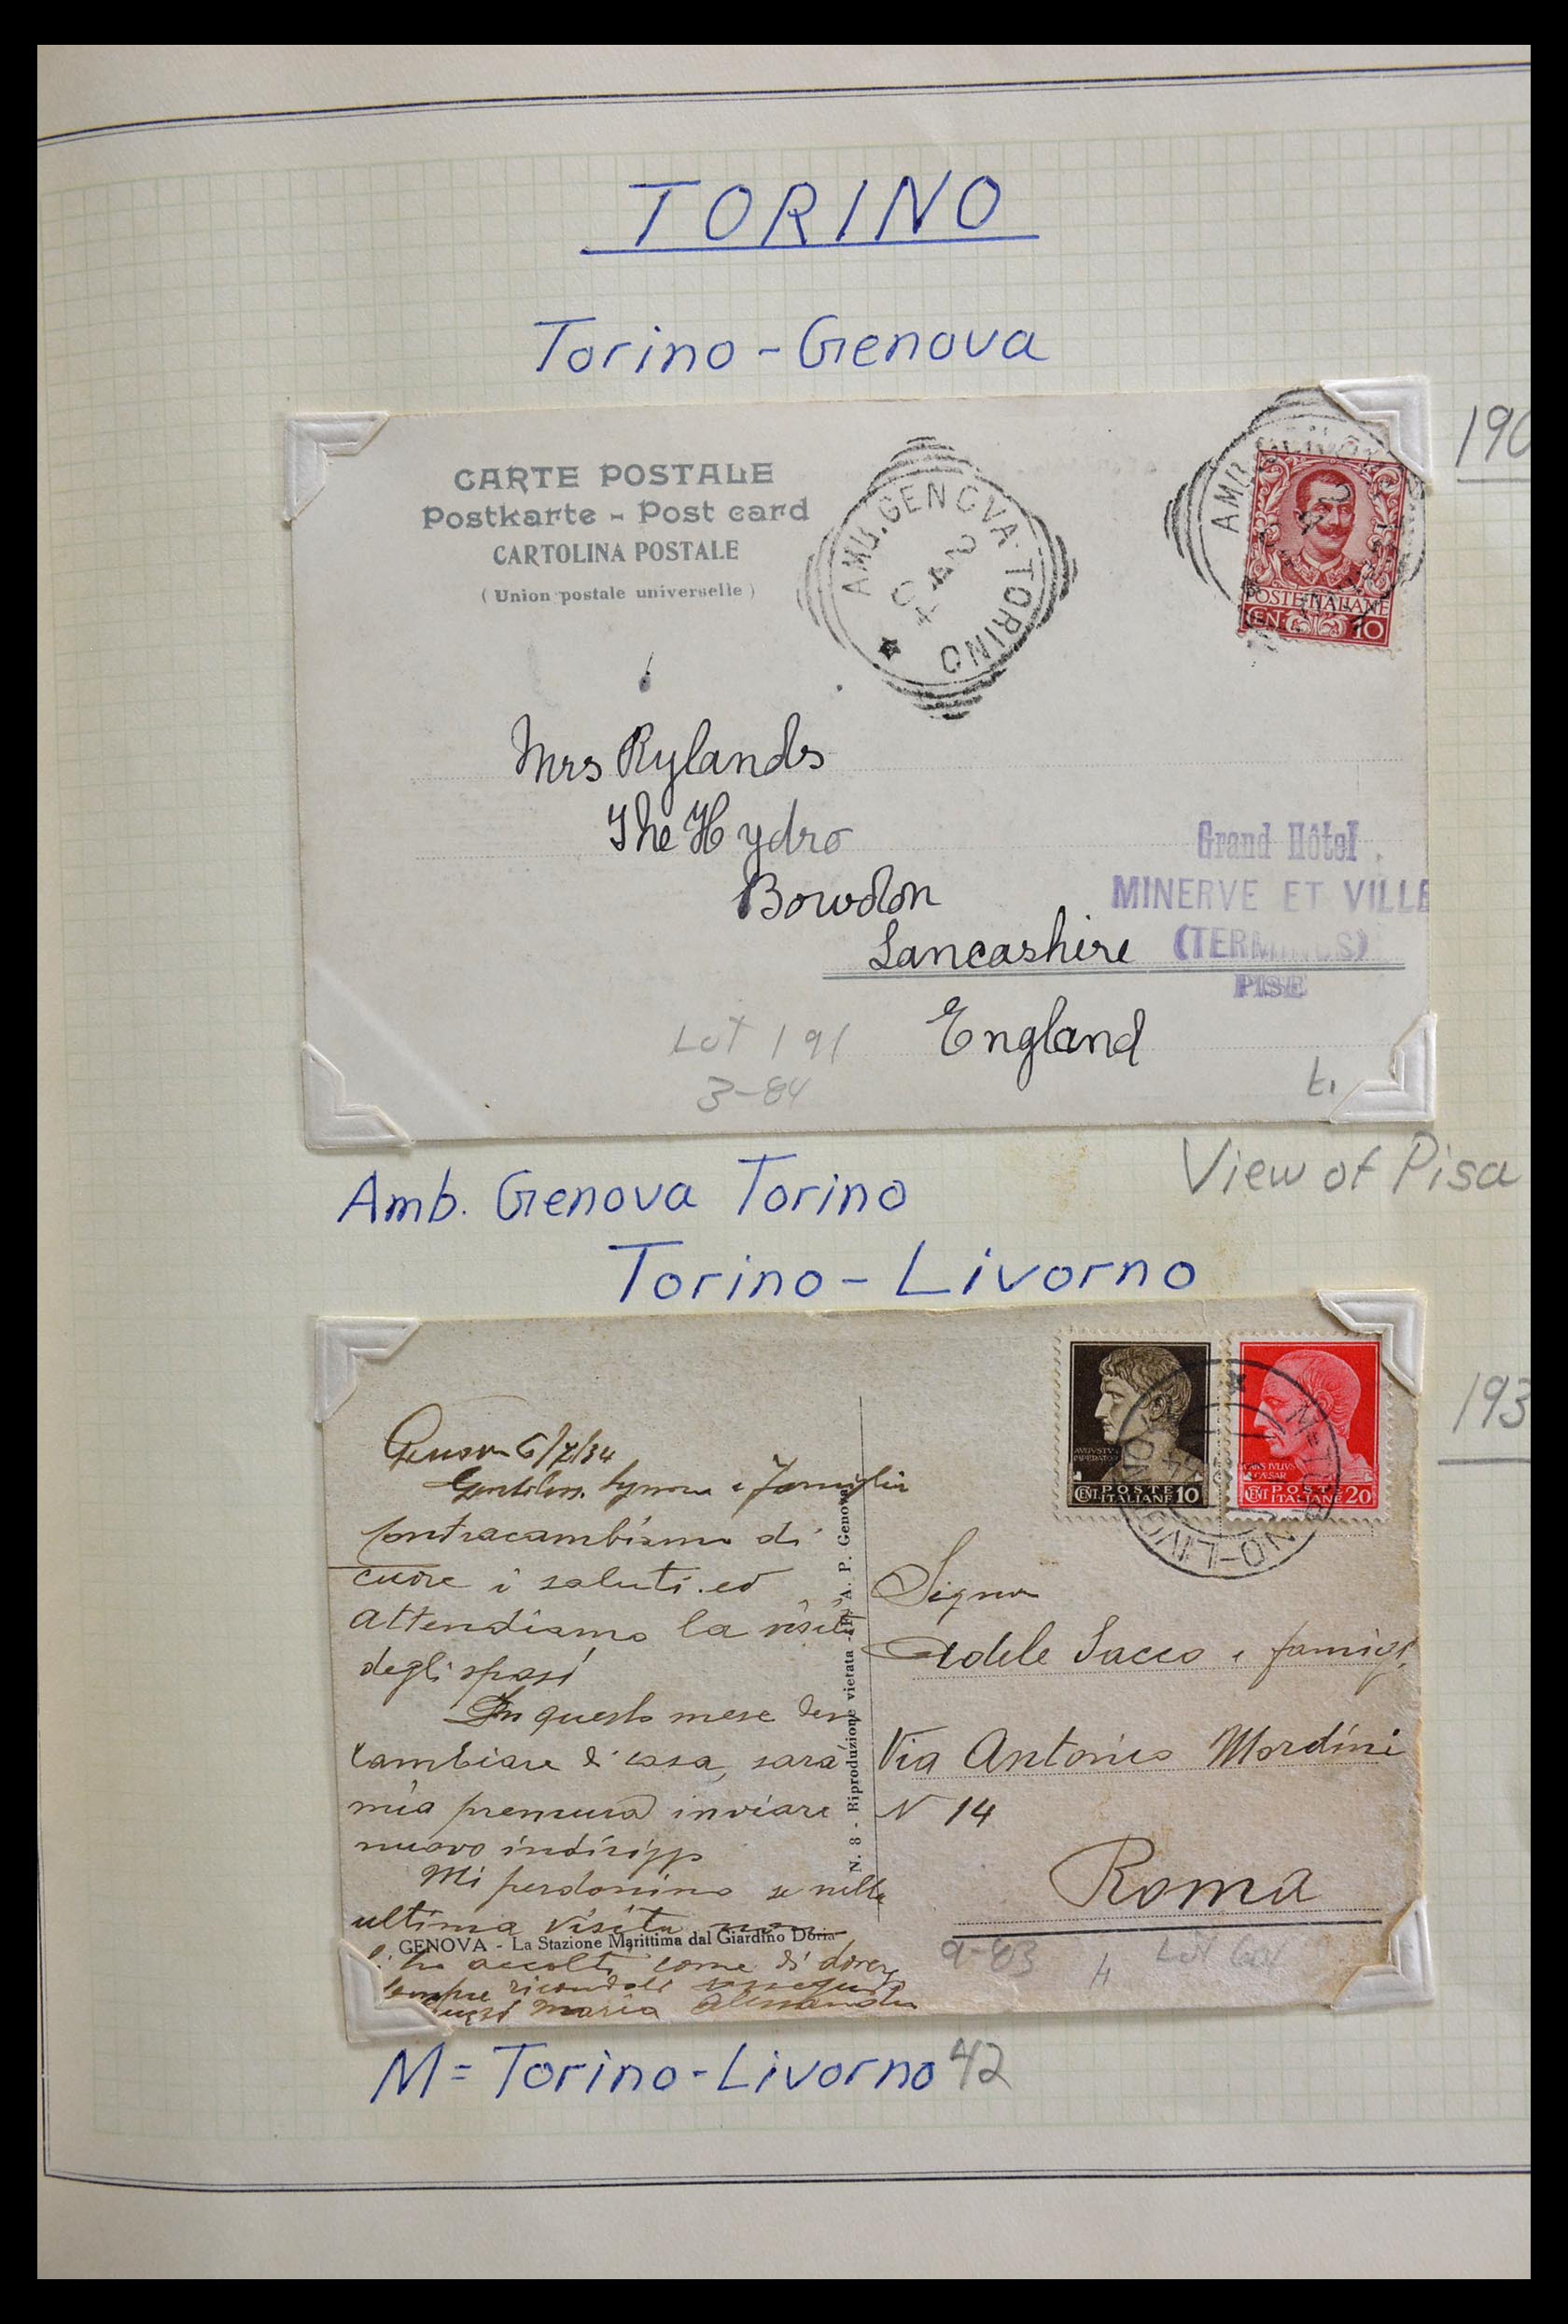 TORINO
Torino - Genova
190
CARTE POSTALE
Postkarte - Post card
CARTOLINA POSTALE
(Union postale universelle)
AMB. GENOVA TORINO
AMB.
POSTE ITALIANE
CEN. 10
Mrs Rylands
The Hydro
Bowdon
Lancashire
England
Grand Hôtel
MINERVE ET VILLE
(TERMINUS)
PISE
Lot 191
3-84
t.
View of Pisa
Amb. Genova Torino
Torino - Livorno
193
AVGVSTVS
IMPERATOR
CENT. POSTE ITALIANE 10
CAIVS IVLIVS
CAESAR
CENT. POSTE ITALIANE 20
Genova 6/7/34
Famiglia
Contracambiamo di
cuore i saluti ed
attendiamo la visita
degli sposi
In questo mese
cambiare di casa, sarà
mia premura inviare
nuovo indirizzo
Mi perdonino se nella
ultima visita non
ho accolti come di
Maria
GENOVA - La Stazione Marittima dal Giardino Doria
N. 8 - Riproduzione vietata - A. P. Genova
Signora
Adele Sacco e famigl.
Via Antonio Mordini
N 14
Roma
9-83
H
Lot
M = Torino - Livorno 42